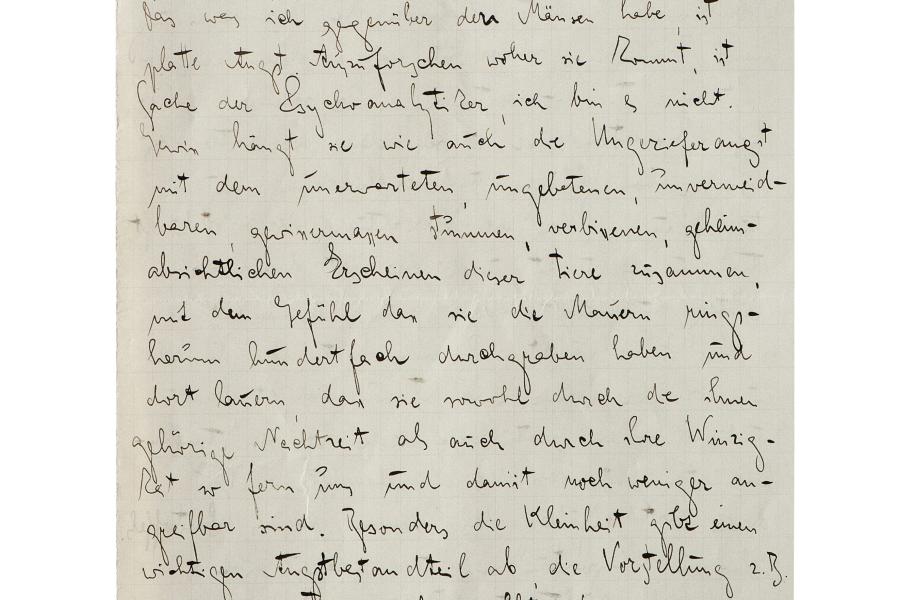 das was ich gegenüber den Mäusen habe, ist
platte Angst. Auszuforschen woher sie kommt, ist
Sache der Psychoanalytiker, ich bin es nicht.
Gewiss hängt sie wie auch die Ungezieferangst
mit dem unerwarteten, ungebetenen, unvermeid-
baren, gewissermassen stummen, verbissenen, geheim-
absichtlichen Erscheinen dieser Tiere zusammen,
mit dem Gefühl dass sie die Mauern rings-
herum hundertfach durchgraben haben und
dort lauern, dass sie sowohl durch die ihnen
gehörige Nachtzeit als auch durch ihre Winzig-
keit so fern uns und damit noch weniger an-
greifbar sind. Besonders die Kleinheit gibt einen
wichtigen Angstbestandteil ab, die Vorstellung z.B.